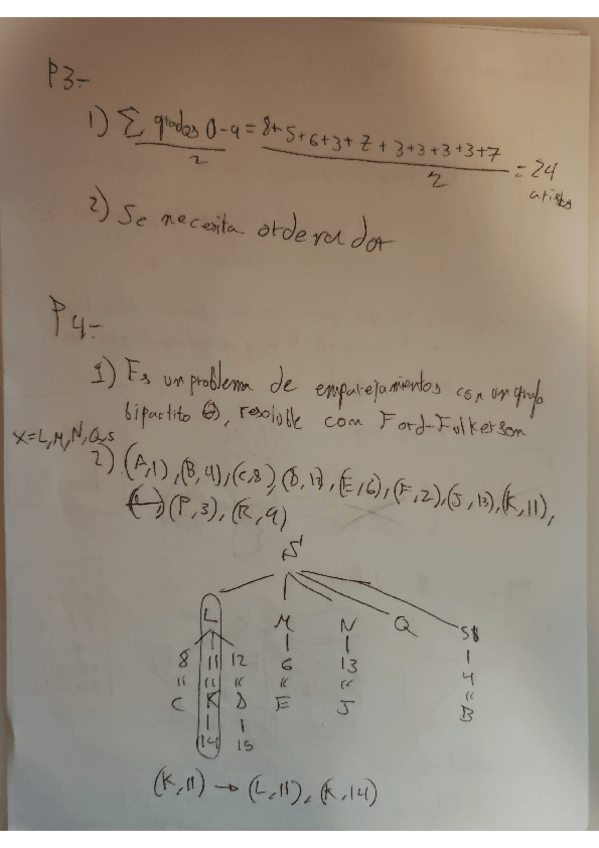 P3.-
1) Σ grados 0-9 / 2 = 8+5+6+3+7+3+3+3+3+7 / 2 = 24 aristas
2) Se necesita ordenador
P4.-
1) Es un problema de emparejamientos con un grafo
bipartito, resoluble con Ford-Fulkerson
X=L,M,N,Q,S
2) (A,1), (B,4), (C,8), (D,12), (E,6), (F,2), (J,13), (K,11),
(P,3), (R,9)
S'
L M N Q S
8 11 12 6 13 4
" " " " " "
C K D E J B
14 15
(K,11) → (L,11), (K,14)